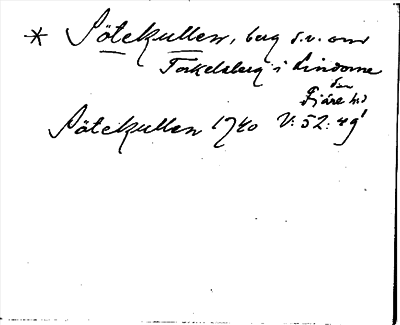 * Sötekullen, berg s.v. om
Torkelsberg i Lindome
sn
Fjäre hd
Sötekullen 1740 V: 52: 49